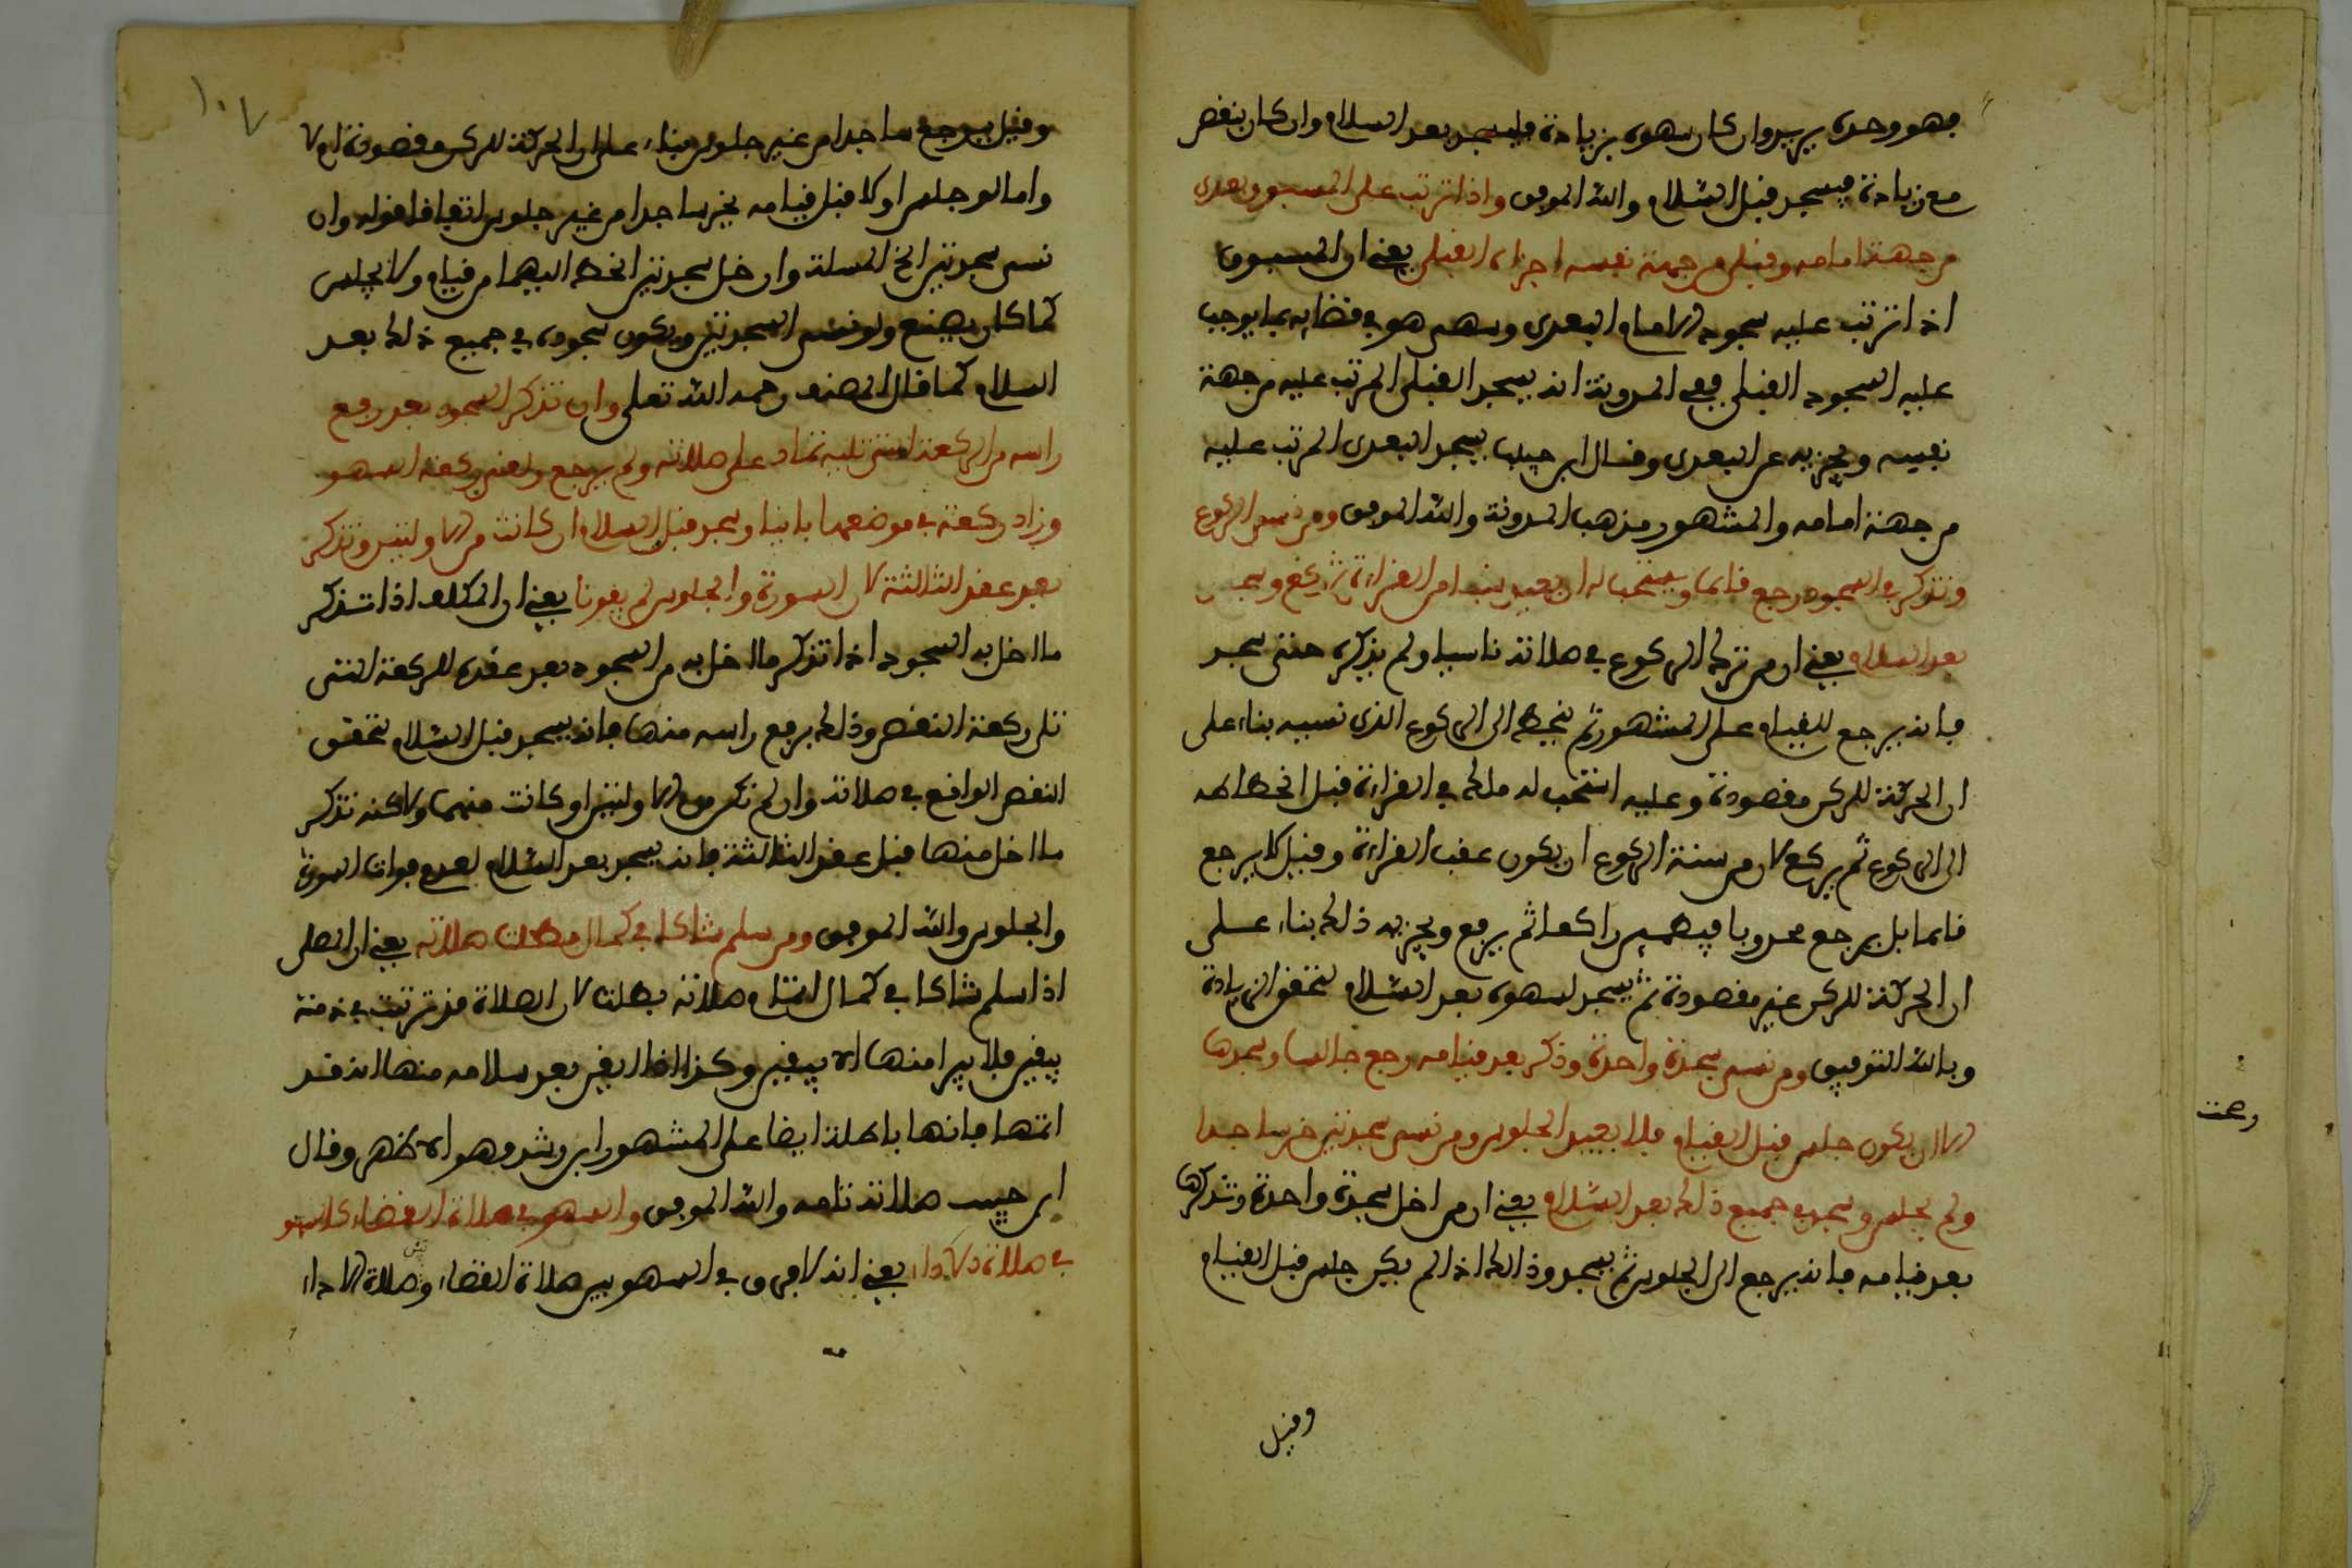 فهو وحده يريد وان كان سهوه بزيادة فليسجد بعد السلام وان كان بنقص
مع زيادة فيسجد قبل السلام والله الموفق واذا ترتب على المسبوق بعدي
من جهة امامه وقبلي من جهة نفسه اجزاه القبلي يعني ان المسبوق
اذا ترتب عليه سجود الامام البعدي وسهى هو في قضايه بما يوجب
عليه السجود القبلي ففي المدونة انه يسجد القبلي المرتب عليه من جهة
نفسه ويجزيه عن البعدي وقال ابن حبيب يسجد البعدي المرتب عليه
من جهة امامه والمشهور مذهب المدونة والله الموفق ومن نسي الركوع
وتذكره في السجود رجع قايما ويستحب له ان يعيد شيئا من القراءة ثم يركع ويسجد
بعد السلام يعني ان من ترك الركوع في صلاته ناسيا ولم يذكره حتى سجد
فانه يرجع للقيام على المشهور ثم ينحط الى الركوع الذي نسيه بناء على
ان الحركة للركن مقصودة وعليه استحب له ملك في القراءة قبل انحطاطه
الى الركوع ثم يركع لان من سنة الركوع ان يكون عقب القراءة وقيل لا يرجع
قايما بل يرجع محدوبا فيطمين راكعا ثم يرفع ويجزيه ذلك بناء على
ان الحركة للركن غير مقصودة ثم يسجد لسهوه بعد السلام لتحقق الزيادة
وبالله التوفيق ومن نسي سجدة واحدة وذكر بعد قيامه رجع جالسا وسجدها
الا ان يكون جلس قبل القيام فلا يعيد الجلوس ومن نسي سجدتين خر ساجدا
ولم يجلس ويسجد في جميع ذلك بعد السلام يعني ان من اخل بسجدة واحدة وتذكرها
بعد قيامه فانه يرجع الى الجلوس ثم يسجد وذالك اذا لم يكن جلس قبل القيام
وقيل
١٠٧
وقيل يرجع ساجدا من غير جلوس بناء على ان الحركة للركن مقصودة ام لا
واما لو جلس اولا قبل قيامه يخر ساجدا من غير جلوس اتفاقا قوله وان
نسي سجدتين الخ المسلة وان اخل بسجدتين انحط اليهما من قيام ولا يجلس
كما كان يصنع ولو نسي السجدتين ويكون سجوده في جميع ذلك بعد
السلام كما قال المصنف رحمه الله تعلى وان تذكر السجود بعد رفع
راسه من الركعة التي تليه تمادى على صلاته ولم يرجع والغى ركعة السهو
وزاد ركعة في موضعها بانيا وسجد قبل السلام ان كانت من الاوليين وتذكر
بعد عقد الثالثة لان السورة والجلوس لم يفوتا يعني ان المكلف اذا تذكر
ما اخل به السجود اذا تذكر ما اخل به من السجود بعد عقده للركعة التي
تلي ركعة النقص وذلك برفع راسه منها فانه يسجد قبل السلام لتحقق
النقص الواقع في صلاته وان لم تكن من الاوليين او كانت منهما ولاكنه تذكر
ما اخل منها قبل عقد الثالثة فانه يسجد بعد السلام لعدم فوات السورة
والجلوس والله الموفق ومن سلم شاكا في كمال بطلت صلاته يعني ان المصلي
اذا سلم شاكا في كمال اتمام صلاته بطلت لان الصلاة قد ترتبت في ذمته
بيقين فلا يبرا منها الا بيقين وكذا اذا ايقن بعد سلامه منها انه قد
اتمها فانها باطلة ايضا على المشهور ابن رشد وهو الاظهر وقال
ابن حبيب صلاته تامه والله الموفق والسهو في صلاة القضاء كالسهو
في صلاة الاداء يعني انه لا فرق في السهو بين صلاة القضاء وصلاة الاداء